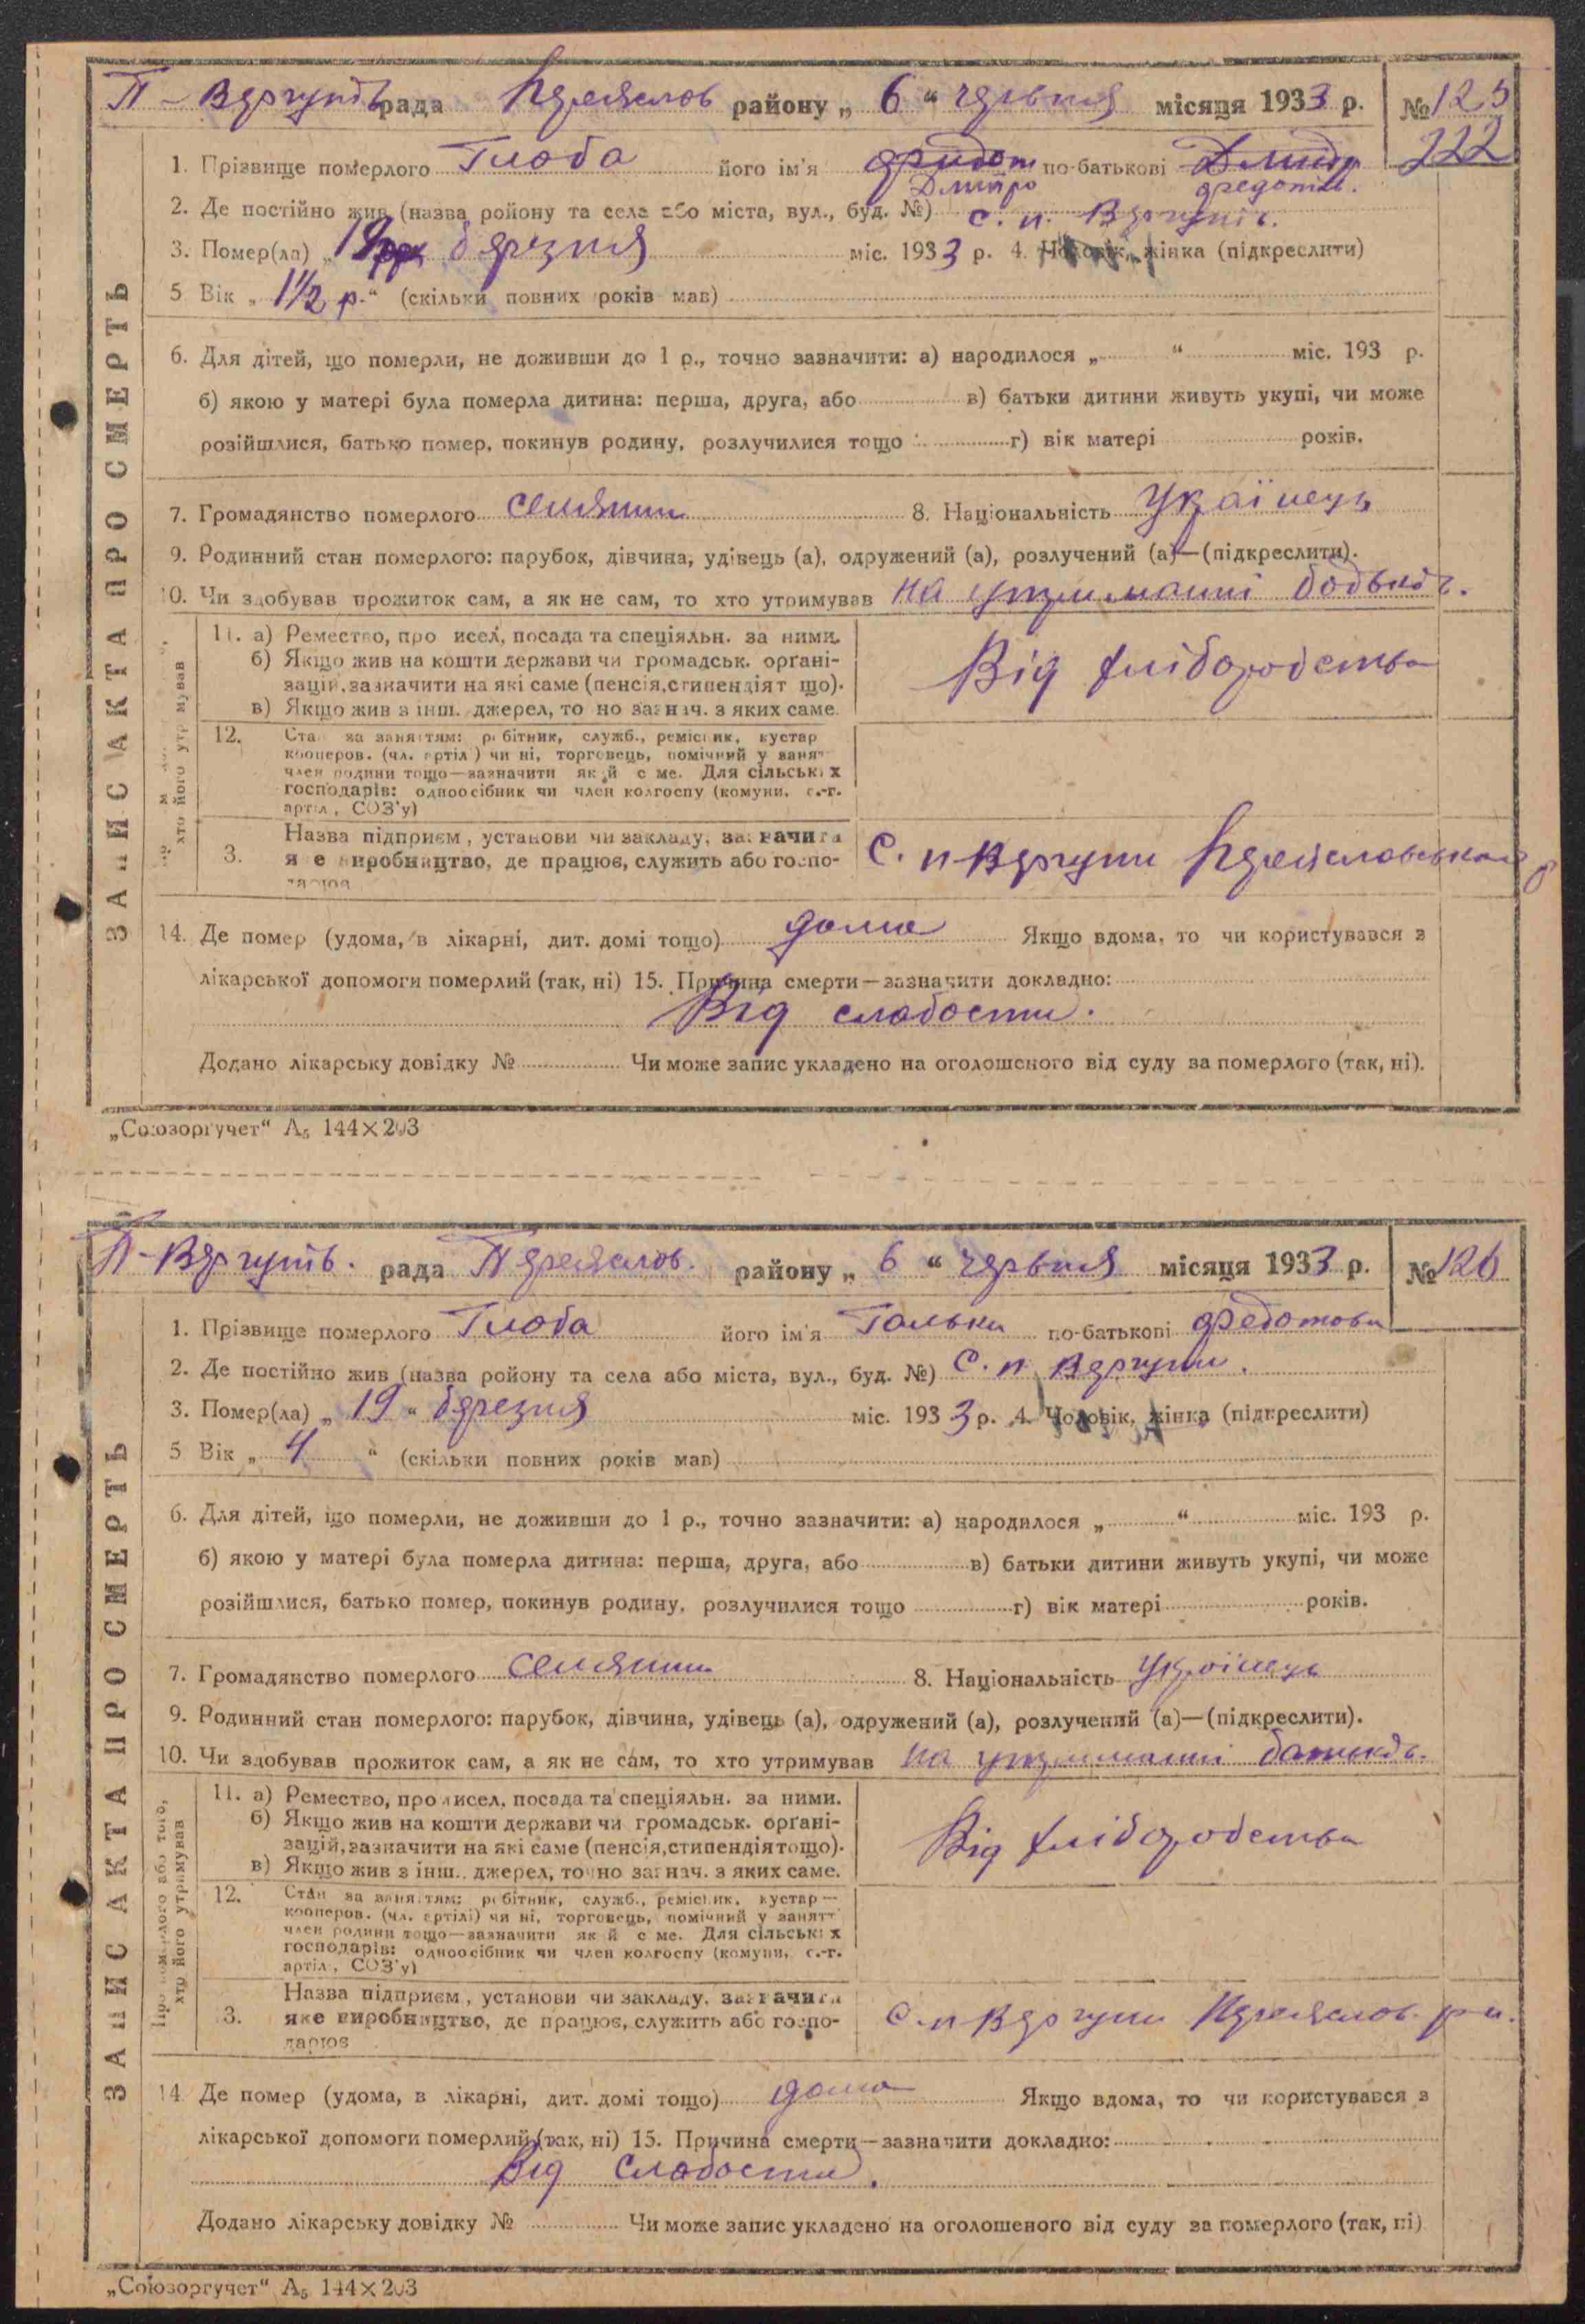 П-Вергунів рада Переяслов району „ 6 “ червня місяця 1933 р. № 125
222
1. Прізвище померлого Глоба його ім'я Федот по-батькові Дмитр
Дмитро Федотів.
2. Де постійно жив (назва ройону та села або міста, вул., буд. №) с. п. Вергунів.
3. Помер(ла) „ 19 березня міс. 1933 р. 4. Чоловік, жінка (підкреслити)
5 Вік „ 1 1/2 р.“ (скільки повних років мав)
6. Для дітей, що померли, не доживши до 1 р., точно зазначити: а) народилося „ “ міс. 193 р.
б) якою у матері була померла дитина: перша, друга, або в) батьки дитини живуть укупі, чи може
розійшлися, батько помер, покинув родину, розлучилися тощо г) вік матері років.
7. Громадянство померлого селянин 8. Національність Українець
9. Родинний стан померлого: парубок, дівчина, удівець (а), одружений (а), розлучений (а)—(підкреслити).
10. Чи здобував прожиток сам, а як не сам, то хто утримував на утриманні батьків.
11. а) Ремество, про исел, посада та спеціяльн. за ними.
б) Якщо жив на кошти держави чи громадськ. орґані-
зацій, зазначити на які саме (пенсія, стипендія т що).
в) Якщо жив з інш. джерел, то но зазнач. з яких саме.
Від хліборобства
12. Ста за заняттям: робітник, служб., ремісник, кустар
кооперов. (чл. артіл) чи ні, торговець, помічний у занят
член родини тощо—зазначити як й с ме. Для сільськ х
господарів: одноосібник чи член колгоспу (комуни, с.-г.
артіл, СОЗ'у)
3. Назва підприєм, установи чи закладу, зазначити
яке виробництво, де працює, служить або госпо-
дарює
С. п-Вергуни Переяславського р
14. Де помер (удома, в лікарні, дит. домі тощо) дома Якщо вдома, то чи користувався з
лікарської допомоги померлий (так, ні) 15. Причина смерти—зазначити докладно:
Від слабости.
Додано лікарську довідку № Чи може запис укладено на оголошеного від суду за померлого (так, ні).
ЗАПИС АКТА ПРО СМЕРТЬ
„Союзоргучет“ А₅ 144×203
П-Вергунів. рада Переяслов. району „ 6 “ червня місяця 1933 р. № 126
1. Прізвище померлого Глоба його ім'я Галька по-батькові Федотова
2. Де постійно жив (назва ройону та села або міста, вул., буд. №) С. п Вергуни.
3. Помер(ла) „ 19 “ березня міс. 1933 р. 4. Чоловік, жінка (підкреслити)
5 Вік „ 4 “ (скільки повних років мав)
6. Для дітей, що померли, не доживши до 1 р., точно зазначити: а) народилося „ “ міс. 193 р.
б) якою у матері була померла дитина: перша, друга, або в) батьки дитини живуть укупі, чи може
розійшлися, батько помер, покинув родину, розлучилися тощо г) вік матері років.
7. Громадянство померлого селянин 8. Національність Українець
9. Родинний стан померлого: парубок, дівчина, удівець (а), одружений (а), розлучений (а)—(підкреслити).
10. Чи здобував прожиток сам, а як не сам, то хто утримував на утриманні батьків.
Про померлого або того,
хто його утримував
11. а) Ремество, про исел, посада та спеціяльн. за ними.
б) Якщо жив на кошти держави чи громадськ. орґані-
зацій, зазначити на які саме (пенсія, стипендія тощо).
в) Якщо жив з інш. джерел, точно зазнач. з яких саме.
Від хліборобства
12. Стан за заняттям: робітник, служб., ремісник, кустар—
кооперов. (чл. артілі) чи ні, торговець, помічний у занятт
член родини тощо—зазначити як й с ме. Для сільськ х
господарів: одноосібник чи член колгоспу (комуни, с.-г.
артіл, СОЗ'у)
3. Назва підприєм, установи чи закладу, зазначити
яке виробництво, де працює, служить або госпо-
дарює
С. п-Вергуни Переяслов. р-н.
14. Де помер (удома, в лікарні, дит. домі тощо) дома Якщо вдома, то чи користувався з
лікарської допомоги померлий (так, ні) 15. Причина смерти—зазначити докладно:
Від слабости.
Додано лікарську довідку № Чи може запис укладено на оголошеного від суду за померлого (так, ні)
ЗАПИС АКТА ПРО СМЕРТЬ
„Союзоргучет“ А₅ 144×203